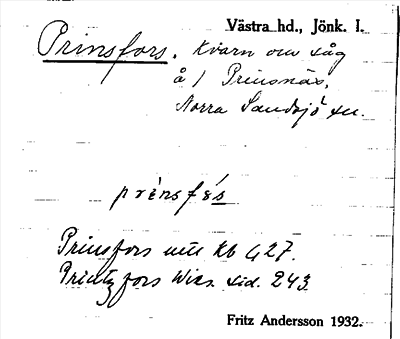 Västra hd., Jönk. l.
Prinsfors. Kvarn om såg
å / Prinsnäs,
Norra Sandsjö sn.
prènsfós
Prinsfors utu Kb 427.
Printzfors Wies. sid. 243
Fritz Andersson 1932.